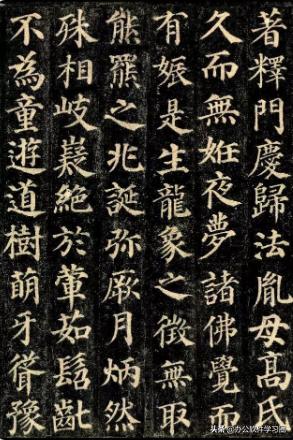 著釋門慶歸法胤母髙氏
久而無姙夜夢諸佛覺而
有娠是生龍象之徵無取
熊羆之兆誕弥厥月炳然
殊相岐嶷絕於葷茹髫齓
不為童遊道樹萌牙聳豫
头条 @办公软件学习圈